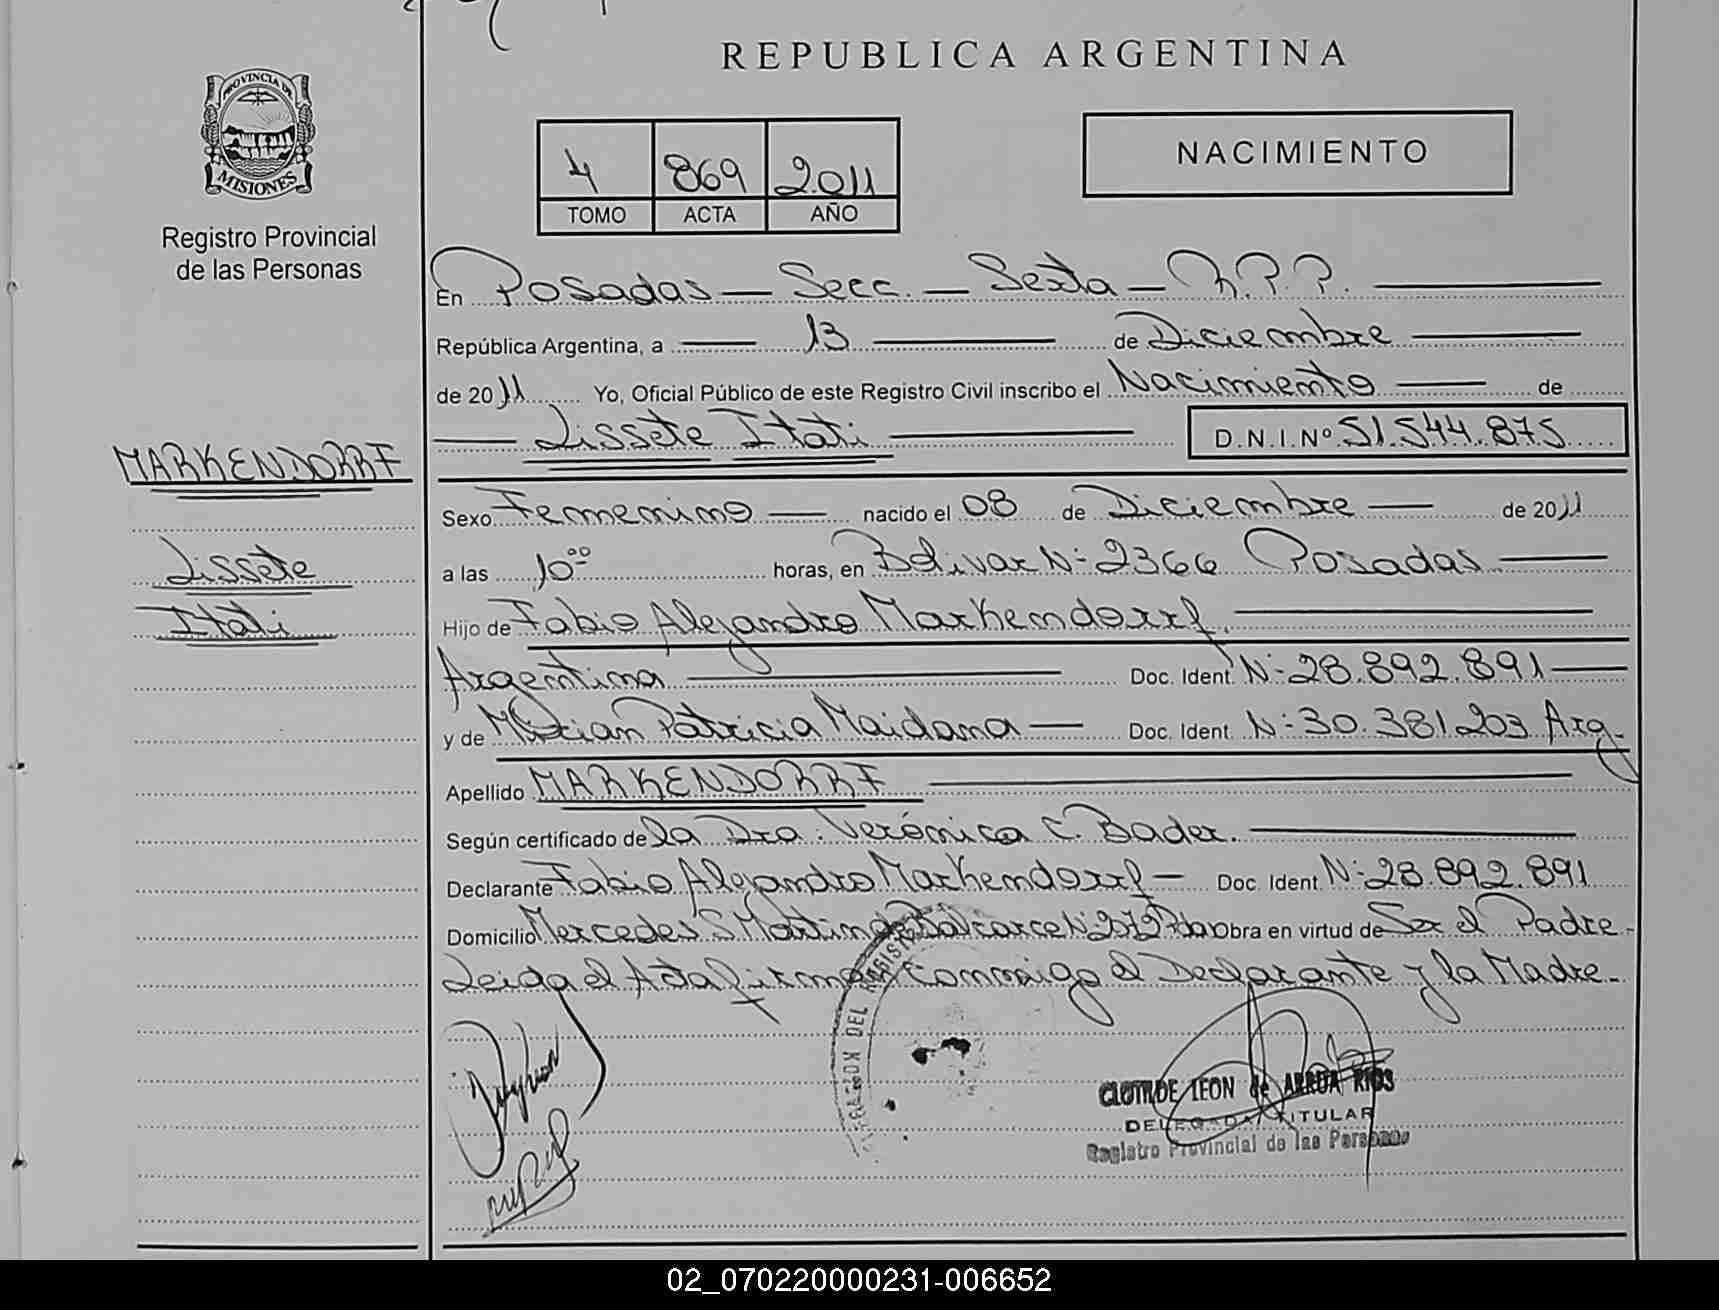 REPUBLICA ARGENTINA
PROVINCIA DE
MISIONES
Registro Provincial
de las Personas
NACIMIENTO
4 869 2.011
TOMO ACTA AÑO
En Posadas — Secc. — Sexta — R.P.P.
República Argentina, a — 13 — de Diciembre
de 2011 Yo, Oficial Público de este Registro Civil inscribo el Nacimiento — de
— Lissete Itati — D.N.I.Nº 51.544.875
MARKENDORRF
Lissete
Itati
Sexo Femenino — nacido el 08 de Diciembre — de 2011
a las 10⁰⁰ horas, en Bolivar Nº 2366 Posadas —
Hijo de Fabio Alejandro Markendorrf.
Argentina — Doc. Ident. Nº 28.892.891 —
y de Mirian Patricia Maidana — Doc. Ident. Nº 30.381.203 Arg.
Apellido MARKENDORRF
Según certificado de la Dra. Verónica C. Bader.
Declarante Fabio Alejandro Markendorrf — Doc. Ident. Nº 28.892.891
Domicilio Mercedes S Martin de Balcarce Nº Obra en virtud de Ser el Padre.
Leida el Acta firman conmigo el Declarante y la Madre.
DEL REGISTRO
CLOTILDE LEON de ARRUA RIOS
DELEGADA TITULAR
Registro Provincial de las Personas
02_070220000231-006652